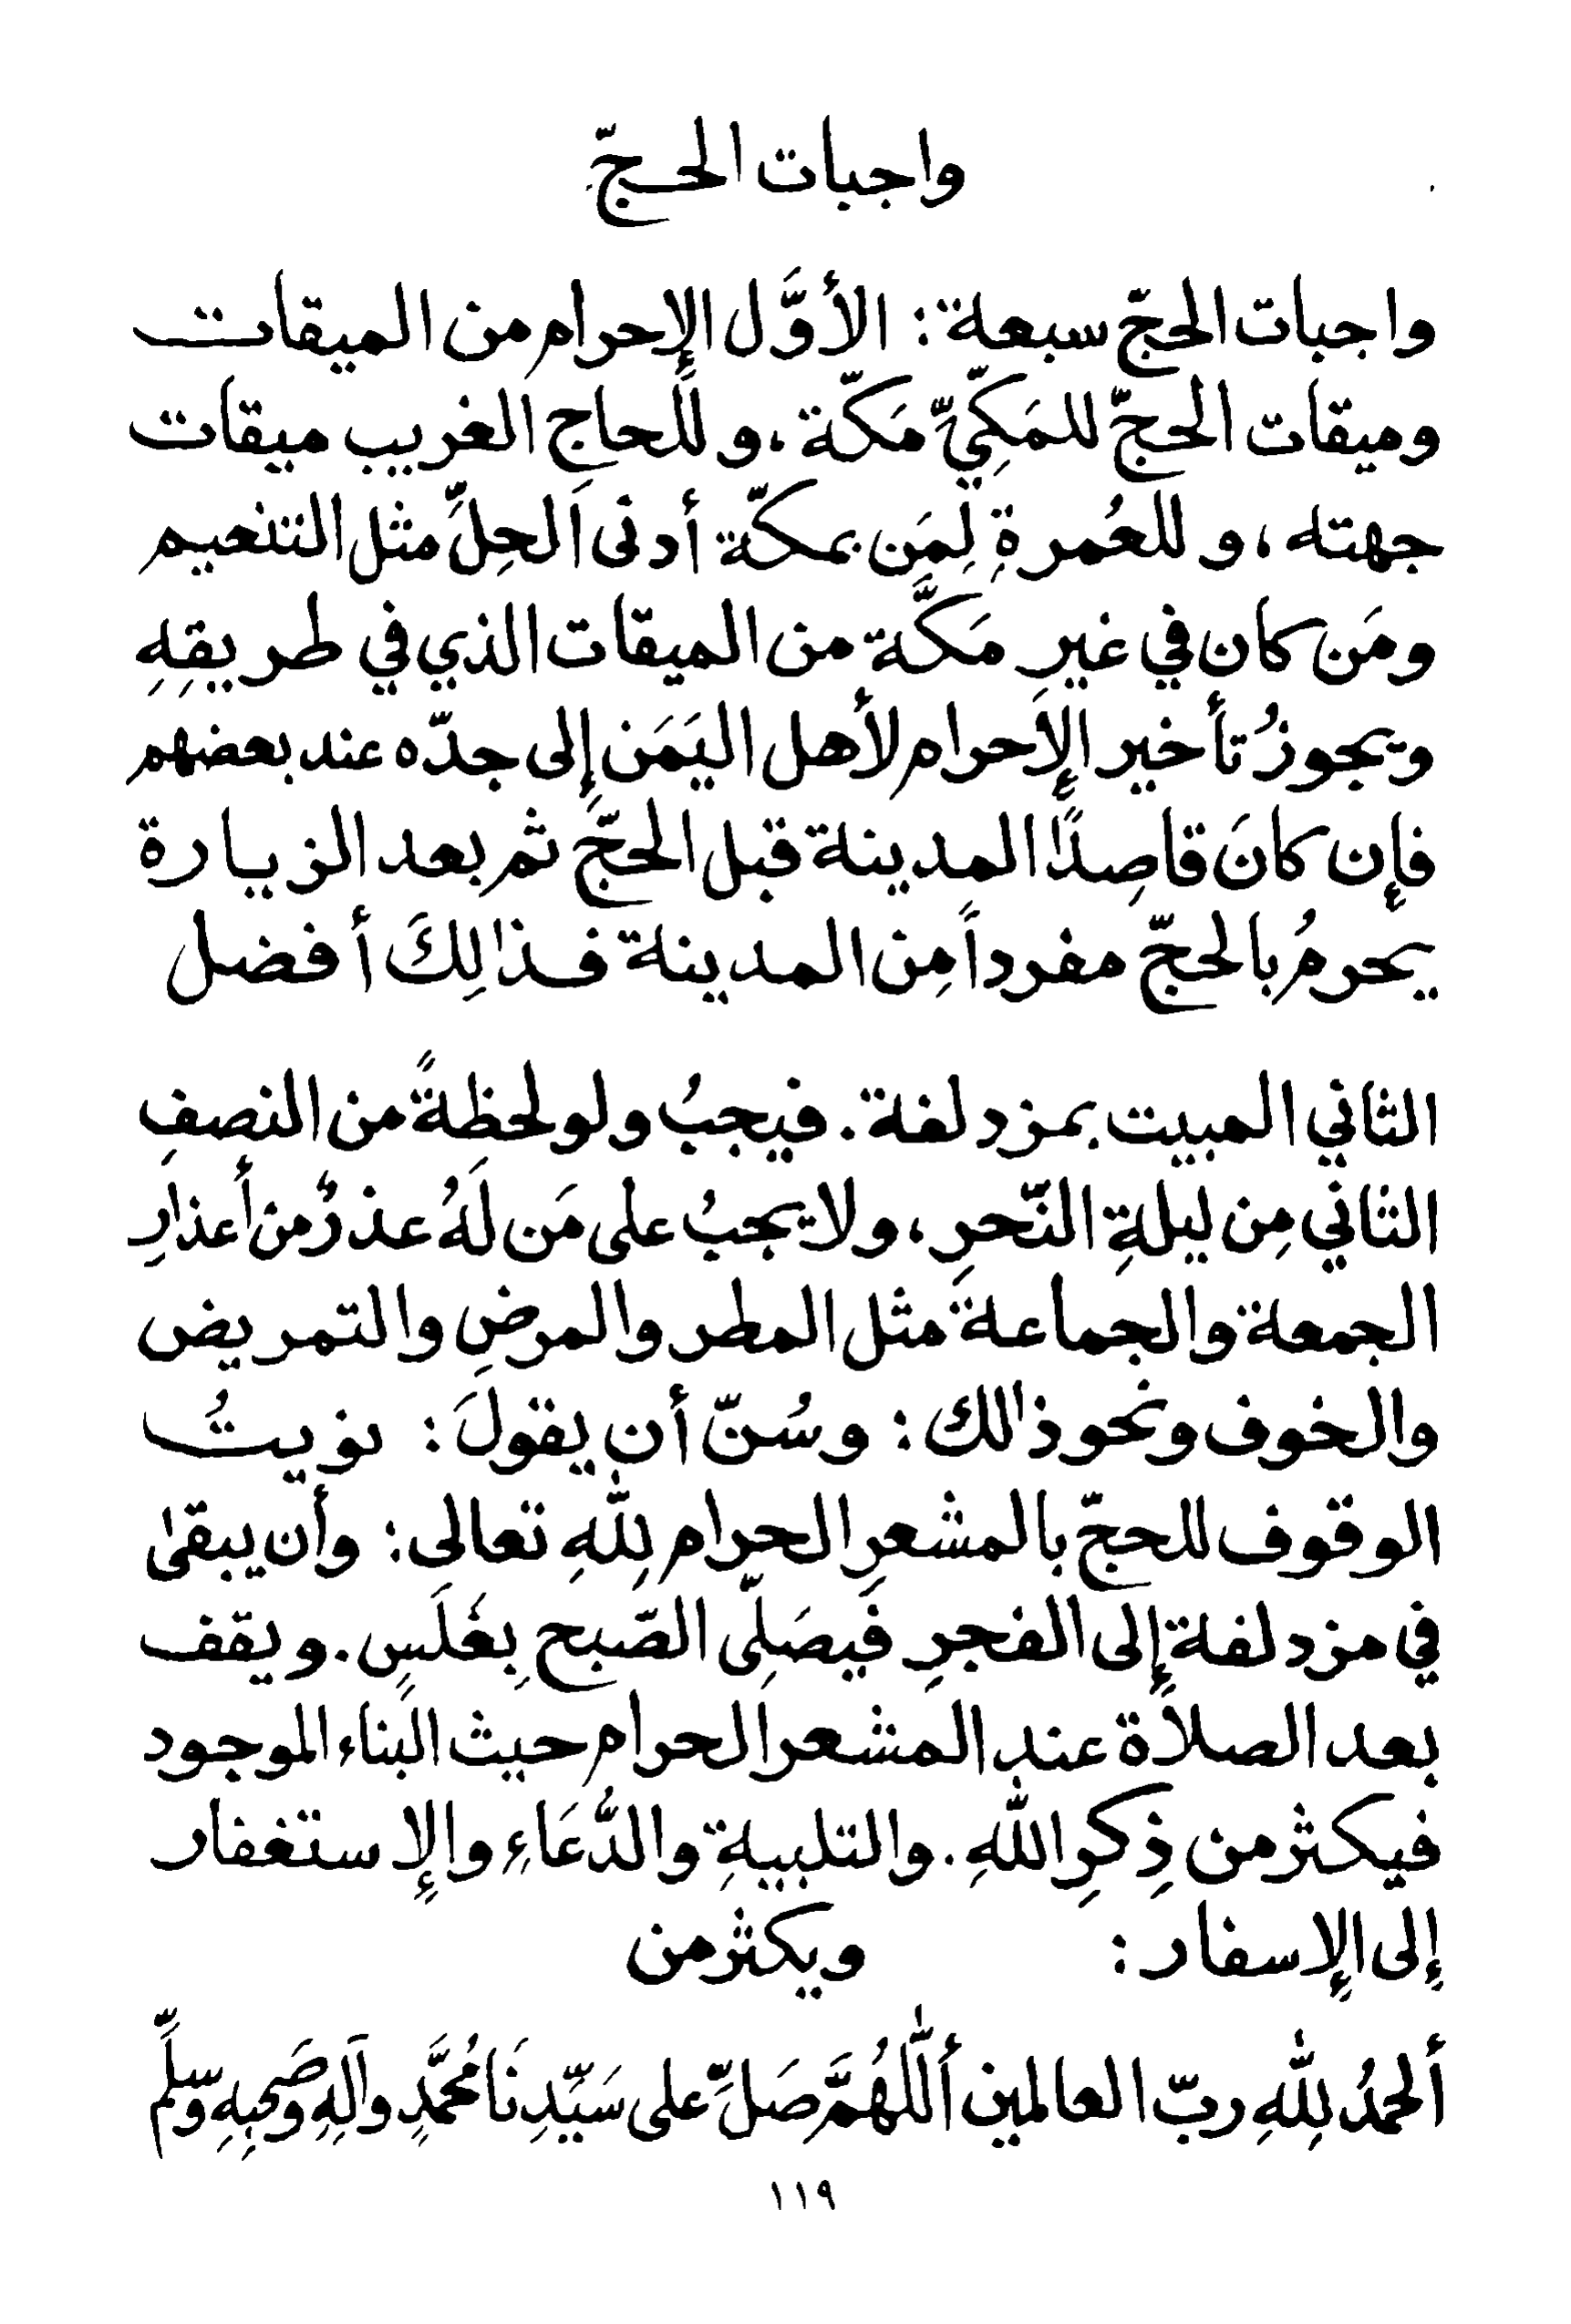 واجبات الحجّ
واجبات الحجّ سبعة : الأوَّل الإحرام من الميقات
وميقات الحجّ للمَكِيِّ مَكّة ، وللحاجِ الغريب ميقات
جهته ، وللعُمرةِ لِمَن بمكّة أدنى الحِلِّ مثل التنعيم
ومَن كان في غيرِ مَكَّة من الميقات الذي في طريقِهِ
ويجوزُ تأخير الإحرام لأهل اليَمَن إلى جدّه عند بعضهم
فإن كانَ قاصِدًا المدينة قبل الحجِّ ثم بعد الزيارة
يحرمُ بالحجّ مفرداً مِن المدينة فذالِكَ أفضل
الثاني المبيت بمزدلفة . فيجبُ ولو لحظةً من النصفِ
الثاني مِن ليلةِ النّحرِ ، ولا يجبُ على مَن لَهُ عذرٌ من أعذارِ
الجمعة والجماعة مثل المطر والمرضِ والتمريض
والخوف ونحو ذالك : وسُنّ أن يقولَ : نويتُ
الوقوف للحجّ بالمشعرِ الحرام لِلّٰهِ تعالى : وأن يبقىٰ
في مزدلفة إلى الفجرِ فَيصَلِّى الصّبح بِغَلَسٍ . ويقف
بعد الصلاة عند المشعر الحرام حيث البناء الموجود
فيكثر من ذِكرِ اللّٰهِ . والتلبيةِ والدُّعَاءِ والإستغفار
إلى الإسفار : ويكثر من
ألحمدُ لِلّٰهِ ربّ العالمين أللّٰهُمَّ صَلِّ على سَيّدِنَا مُحمَّدٍ وآلِهِ وَصَحبِهِ وَسلِّم
١١٩